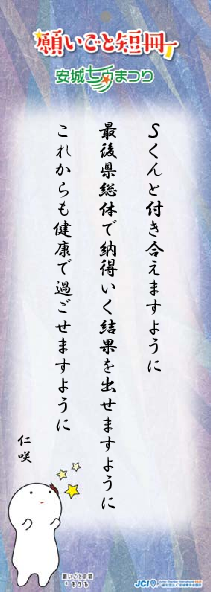 願いごと短冊
安城七夕まつり
Sくんと付き合えますように
最後県総体で納得いく結果を出せますように
これからも健康で過ごせますように
仁咲
願いごと短冊
JCI